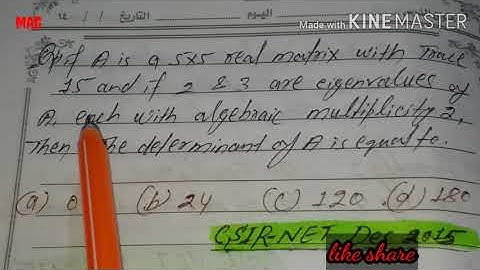 MAC
اليوم التاريخ / / ١٤
Made with KINEMASTER
Q) if A is a 5x5 real matrix with trace
15 and if 2 & 3 are eigenvalues of
A, each with algebraic multiplicity 2,
Then the determinant of A is equal to.
(a) 0 (b) 24 (c) 120 (d) 180
CSIR-NET Dec 2015
like share